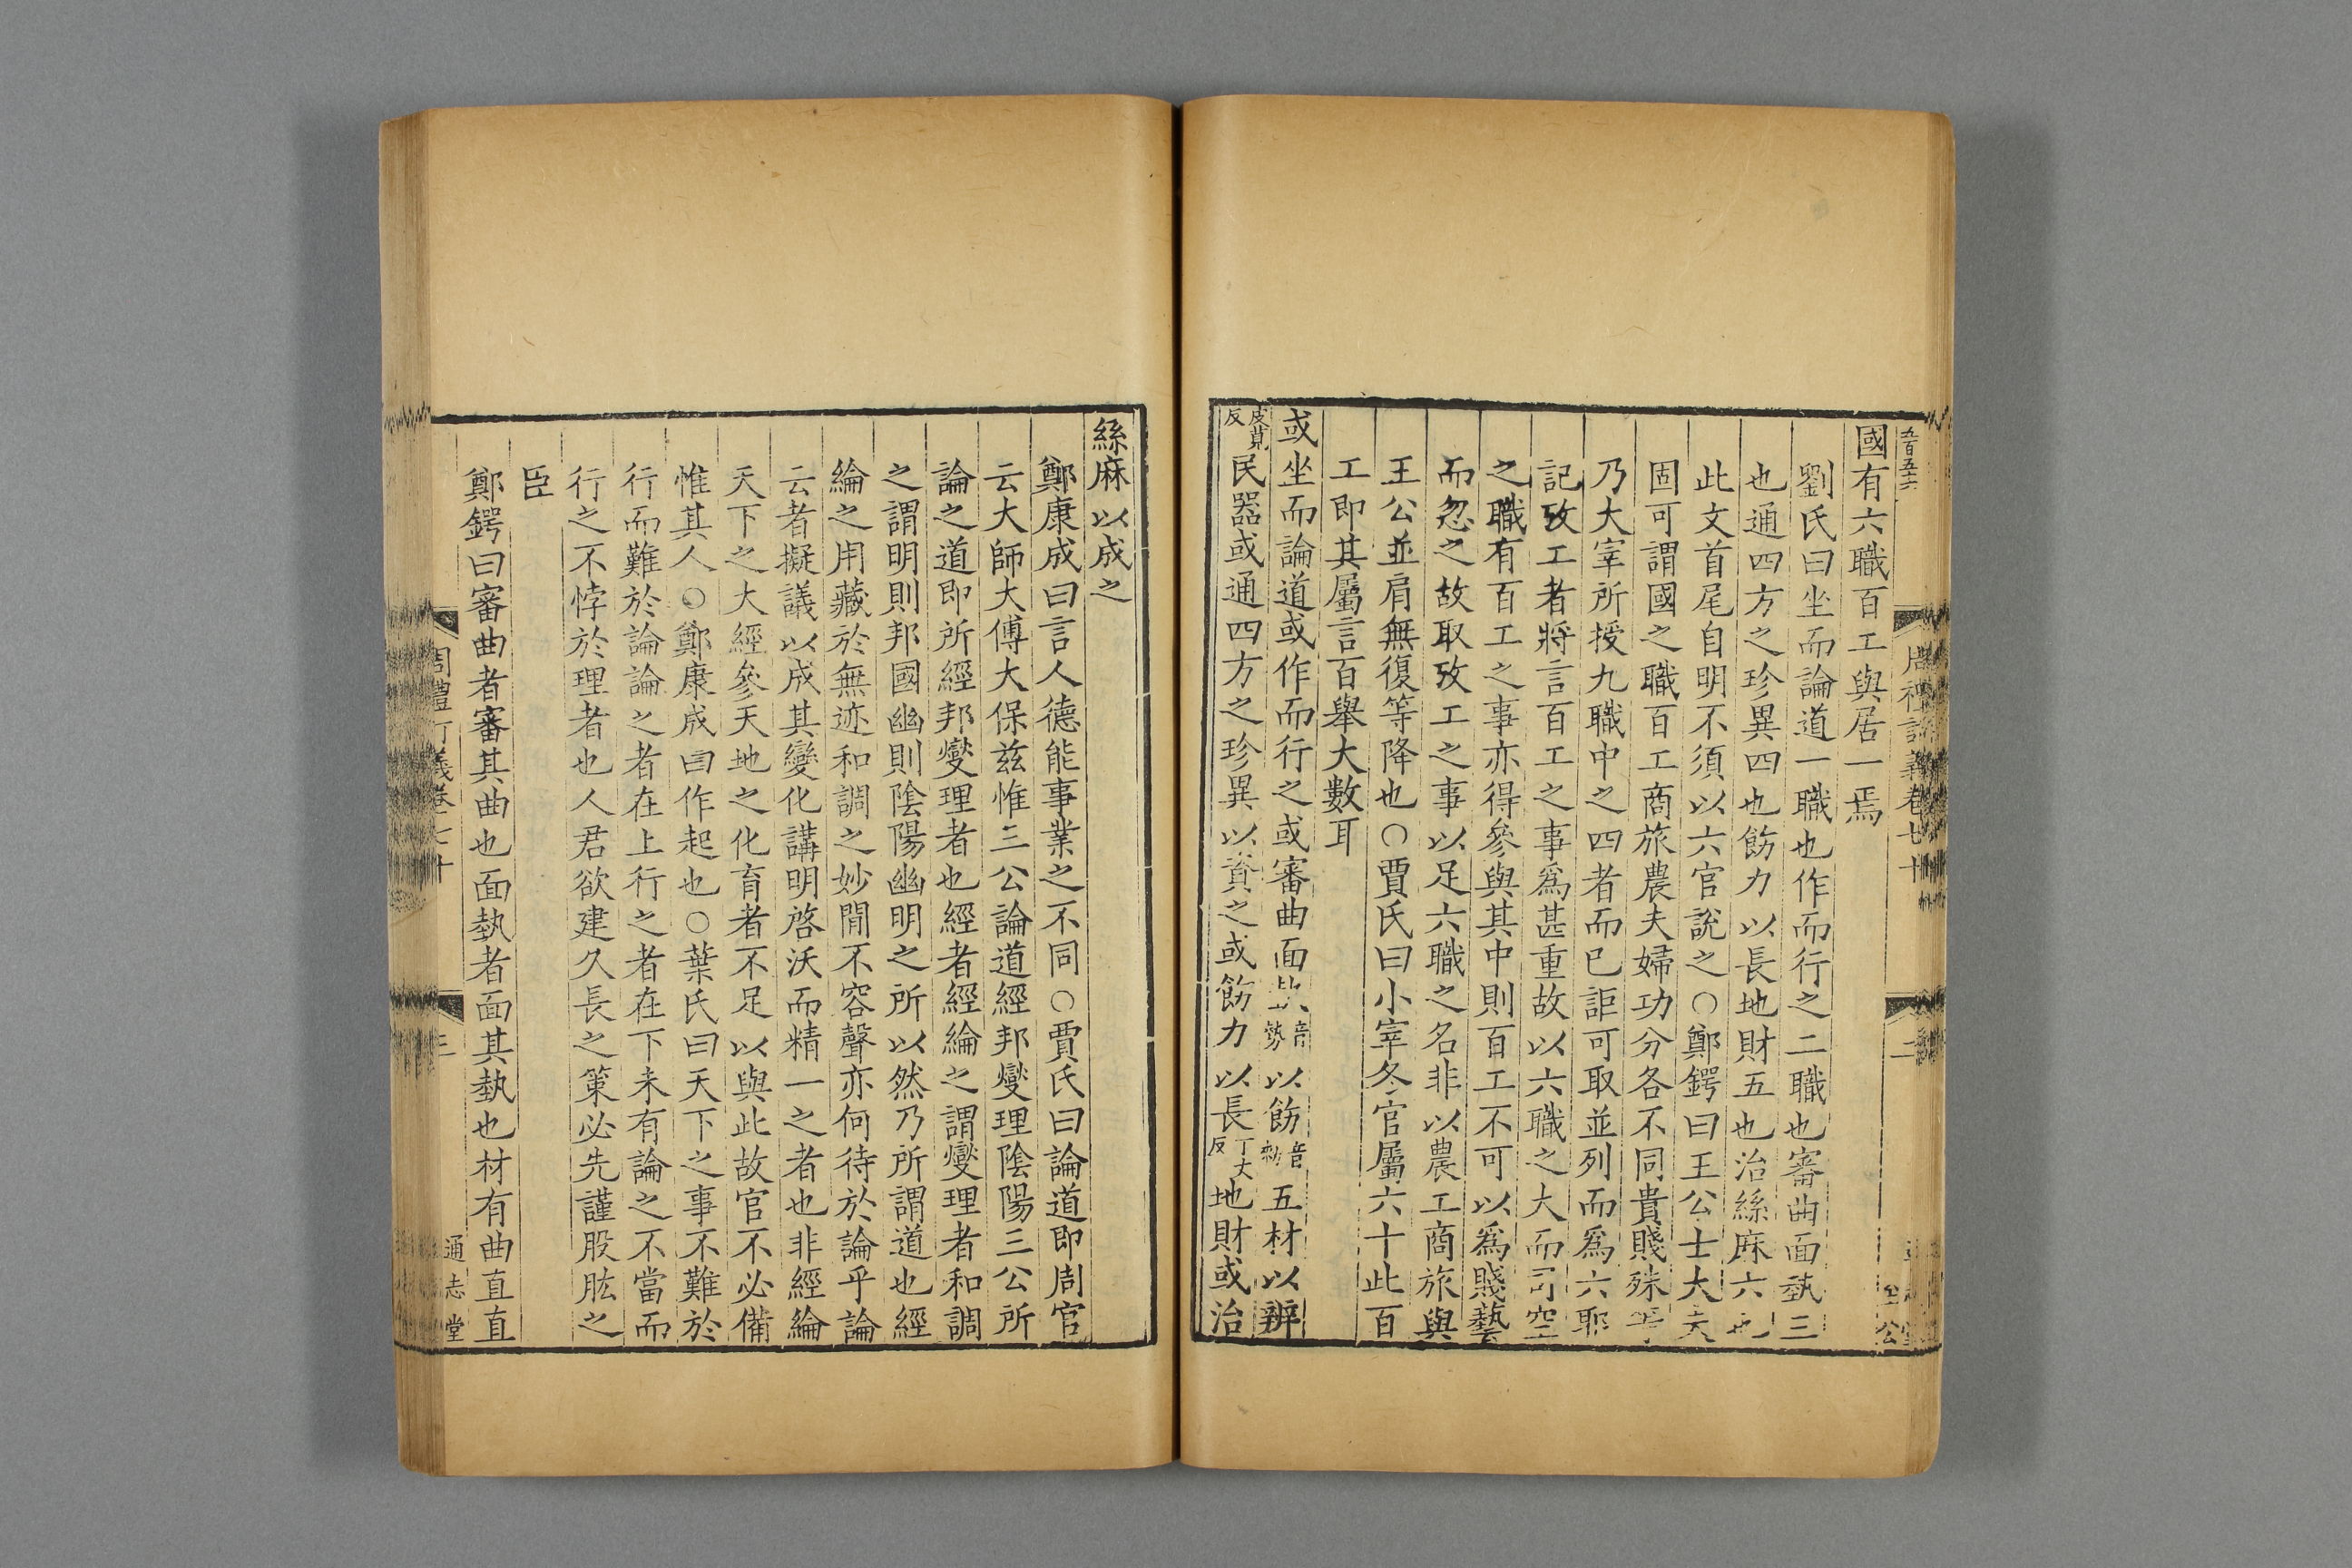 五百五六
國有六職百工與居一焉
劉氏曰坐而論道一職也作而行之二職也審曲面埶三
也通四方之珍異四也飭力以長地財五也治絲麻六也
此文首尾自明不須以六官說之○鄭鍔曰王公士大夫
固可謂國之職百工商旅農夫婦功分各不同貴賤殊
乃大宰所授九職中之四者而已詎可取並列而爲六耶
記攷工者將言百工之事爲甚重故以六職之大而司空
之職有百工之事亦得參與其中則百工不可以爲賤藝
而忽之故取攷工之事以足六職之名非以農工商旅與
王公並肩無復等降也○賈氏曰小宰冬官屬六十此百
工即其屬言百舉大數耳
或坐而論道或作而行之或審曲面埶音勢以飭音勑五材以辨
皮莧反民器或通四方之珍異以資之或飭力以長丁丈反地財或治
絲麻以成之
鄭康成曰言人德能事業之不同○賈氏曰論道即周官
云大師大傅大保茲惟三公論道經邦燮理陰陽三公所
論之道即所經邦燮理者也經者經綸之謂燮理者和調
之謂明則邦國幽則陰陽幽明之所以然乃所謂道也經
綸之用藏於無迹和調之妙閒不容聲亦何待於論乎論
云者擬議以成其變化講明啓沃而精一之者也非經綸
天下之大經參天地之化育者不足以與此故官不必備
惟其人○鄭康成曰作起也○葉氏曰天下之事不難於
行而難於論論之者在上行之者在下未有論之不當而
行之不悖於理者也人君欲建久長之策必先謹股肱之
臣
鄭鍔曰審曲者審其曲也面埶者面其埶也材有曲直直
周禮訂義卷七十
三
通志堂